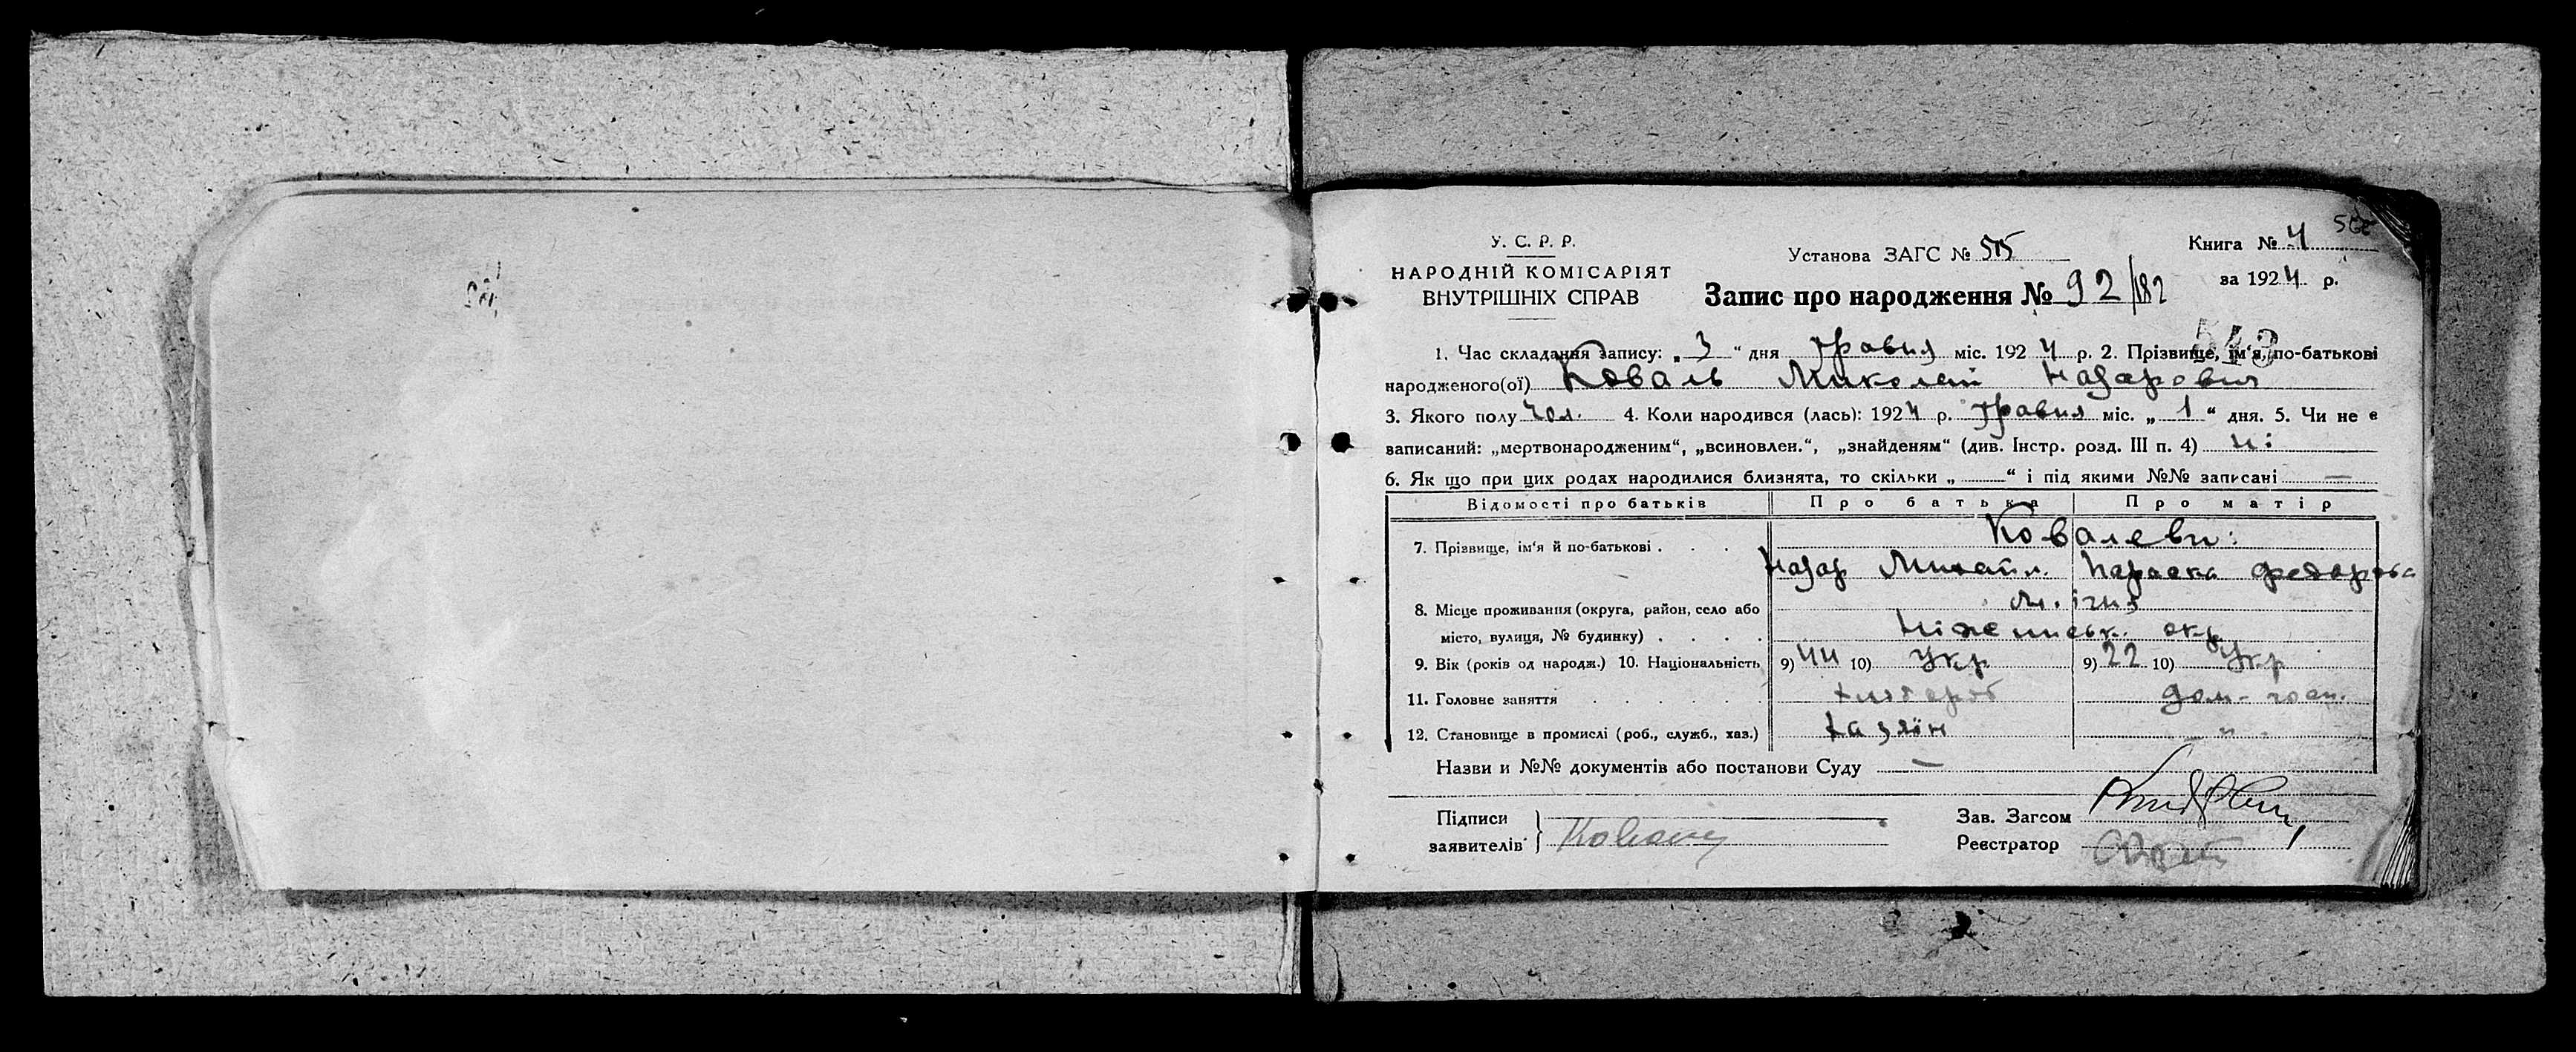 У. С. Р. Р.
НАРОДНІЙ КОМІСАРІЯТ
ВНУТРІШНІХ СПРАВ
Установа ЗАГС № 515
Запис про народження № 92/182
Книга № 4
за 1924 р.
543
1. Час складання запису: „3“ дня травня міс. 1924 р. 2. Прізвище, ім‘я, по-батькові
народженого(ої) Коваль Миколай Назарович
3. Якого полу чол. 4. Коли народився (лась): 1924 р. травня міс. „1“ дня. 5. Чи не є
записаний: „мертвонародженим“, „всиновлен.“, „знайденям“ (див. Інстр. розд. III п. 4) ні
6. Як що при цих родах народилися близнята, то скільки „ “ і під якими №№ записані —
Відомості про батьків Про батька Про матір
7. Прізвище, ім‘я й по-батькові . . . Ковалеви:
Назар Михайл. Параска Федорова
8. Місце проживання (округа, район, село або м. Ічня
місто, вулиця, № будинку) . . . . Ніженськ. окр.
9. Вік (років од народж.) 10. Національність 9) 44 10) Укр 9) 22 10) Укр
11. Головне заняття . . . . . . хлібороб дом-госп.
12. Становище в промислі (роб., служб., хаз.) хазяїн — „ —
Назви и №№ документів або постанови Суду —
Підписи
заявителів
Зав. Загсом
Реєстратор